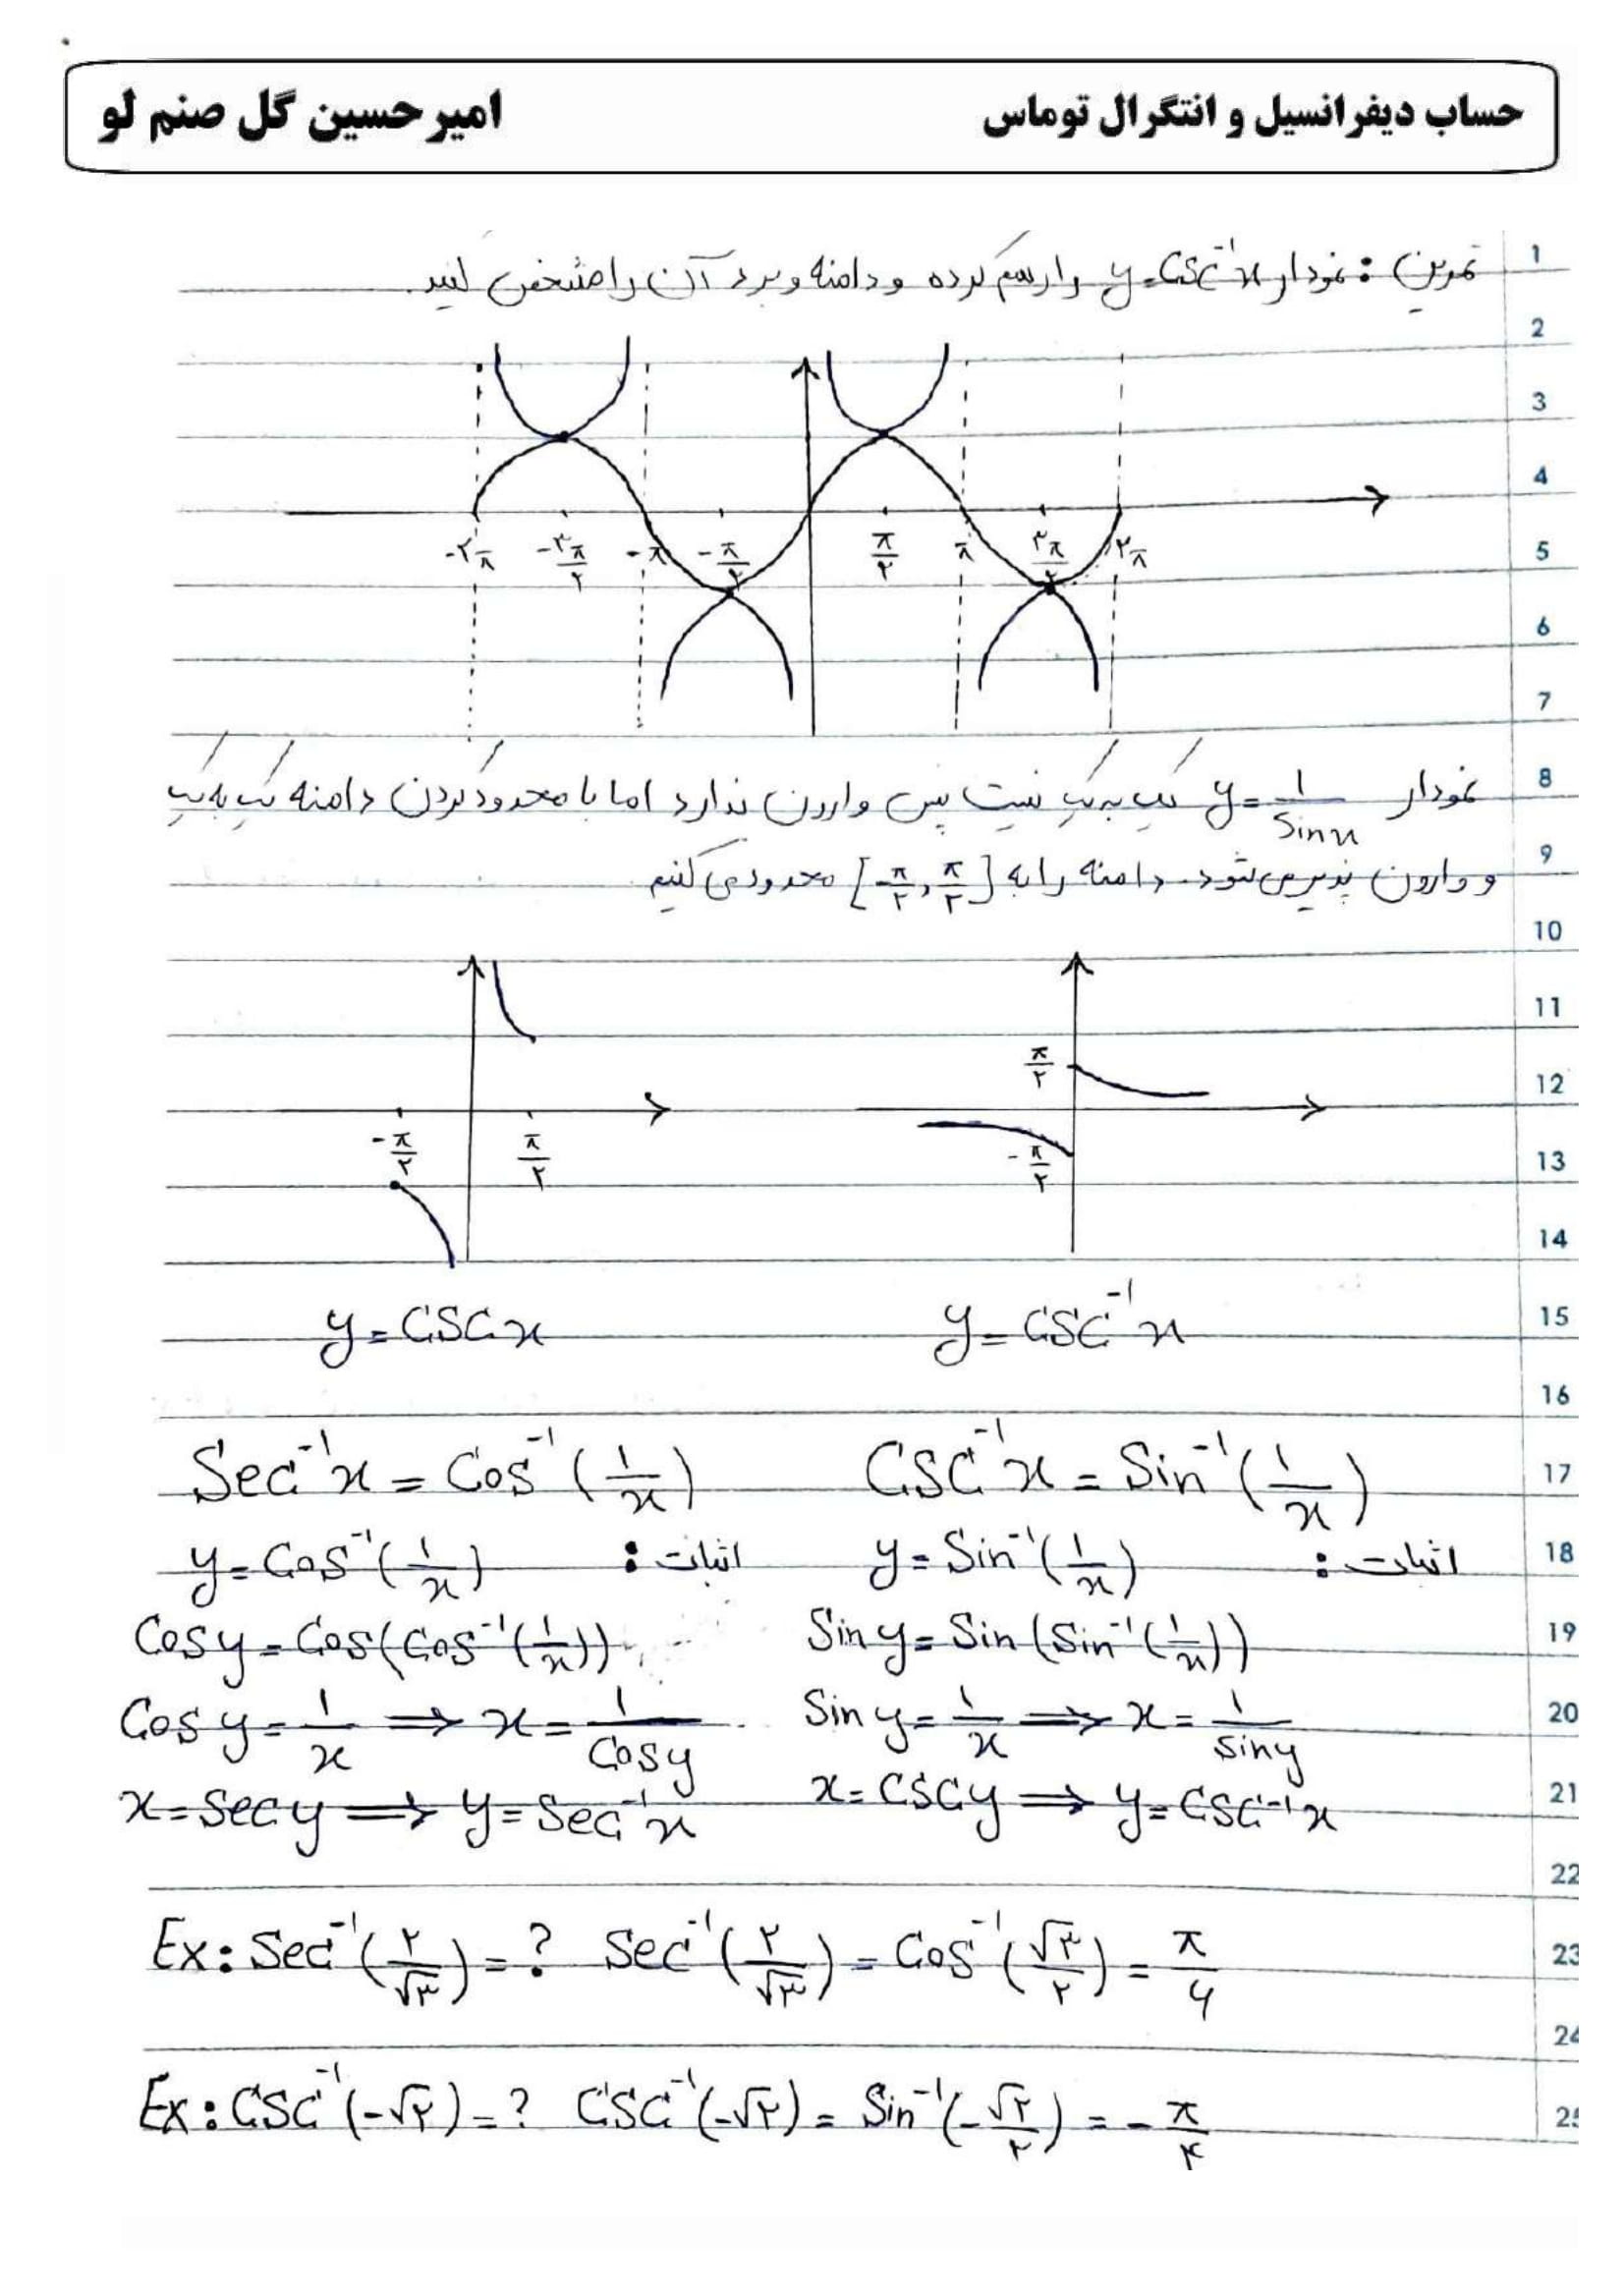 حساب دیفرانسیل و انتگرال توماس امیر حسین گل صنم لو
1
تمرین : نمودار y=csc⁻¹x را رسم کرده و دامنه و برد آن را مشخص کنید.
2
3
4
-۲π -۳π/۲ -π -π/۲ π/۲ π ۳π/۲ ۲π
5
6
7
نمودار y=1/sinx یک به یک نیست پس وارون ندارد اما با محدود کردن دامنه یک به یک
8
و وارون پذیر می‌شود. دامنه را به [-π/۲, π/۲] محدود می‌کنیم
9
10
11
π/۲
12
-π/۲ π/۲ -π/۲
13
14
y=cscx y=csc⁻¹x
15
16
Sec⁻¹x = Cos⁻¹(1/x) CSC⁻¹x = Sin⁻¹(1/x)
17
y=Cos⁻¹(1/x) اثبات : y=Sin⁻¹(1/x) اثبات :
18
Cosy=Cos(Cos⁻¹(1/x)) Siny=Sin(Sin⁻¹(1/x))
19
Cosy=1/x ⟹ x=1/Cosy Siny=1/x ⟹ x=1/siny
20
x=Secy ⟹ y=Sec⁻¹x x=CSCy ⟹ y=CSC⁻¹x
21
22
Ex: Sec⁻¹(۲/√۳)=? Sec⁻¹(۲/√۳)=Cos⁻¹(√۳/۲)=π/۶
23
24
Ex: CSC⁻¹(-√۲)=? CSC⁻¹(-√۲)=Sin⁻¹(-√۲/۲)=-π/۴
25